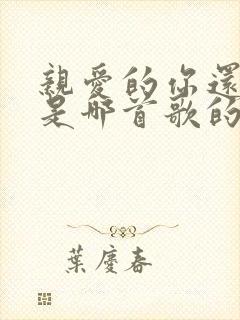 親愛的你還
是哪首歌的
葉慶春